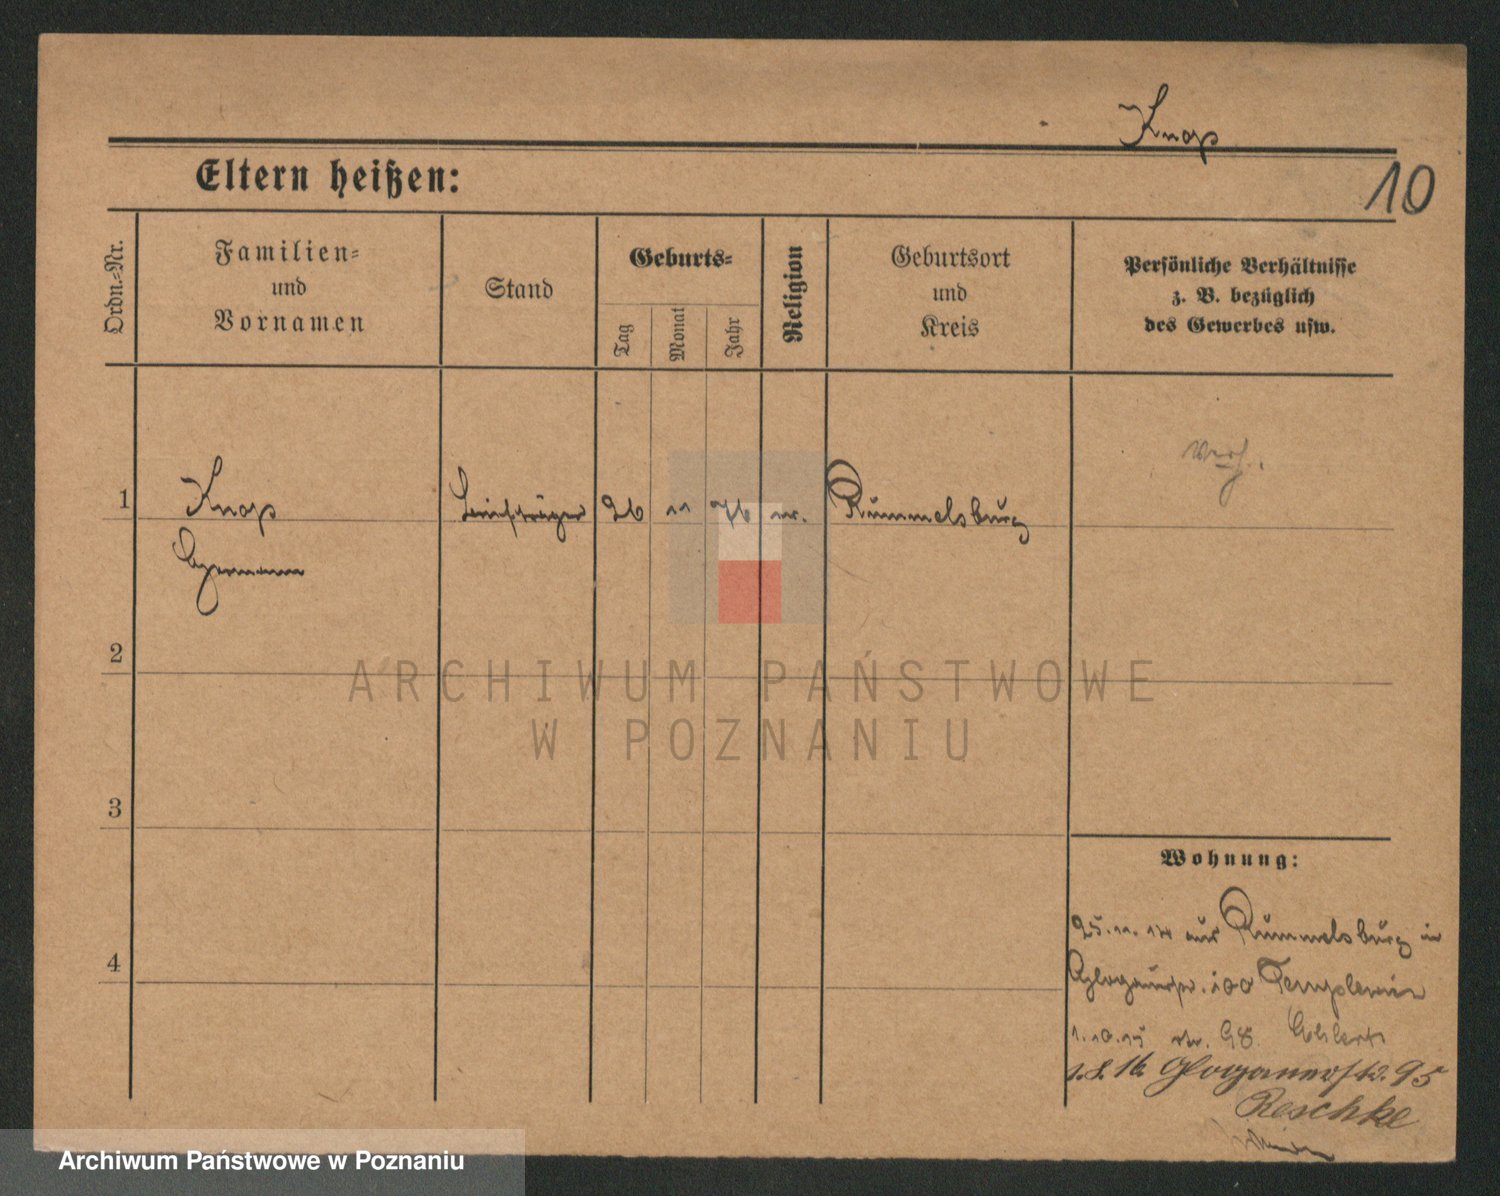 Knop
10
Eltern heißen:
Ordn.-Nr.
Familien-
und
Vornamen
Stand
Geburts-
Tag
Monat
Jahr
Religion
Geburtsort
und
Kreis
Persönliche Verhältnisse
z. B. bezüglich
des Gewerbes usw.
1 Knop 26 11 76 Rummelsburg
Hermann
2
3
4
Wohnung:
25.11.14 aus Rummelsburg in
Glogauerstr. 100
1.10.15 98
Glogauerstr. 95
Reschke
ARCHIWUM PAŃSTWOWE
W POZNANIU
Archiwum Państwowe w Poznaniu